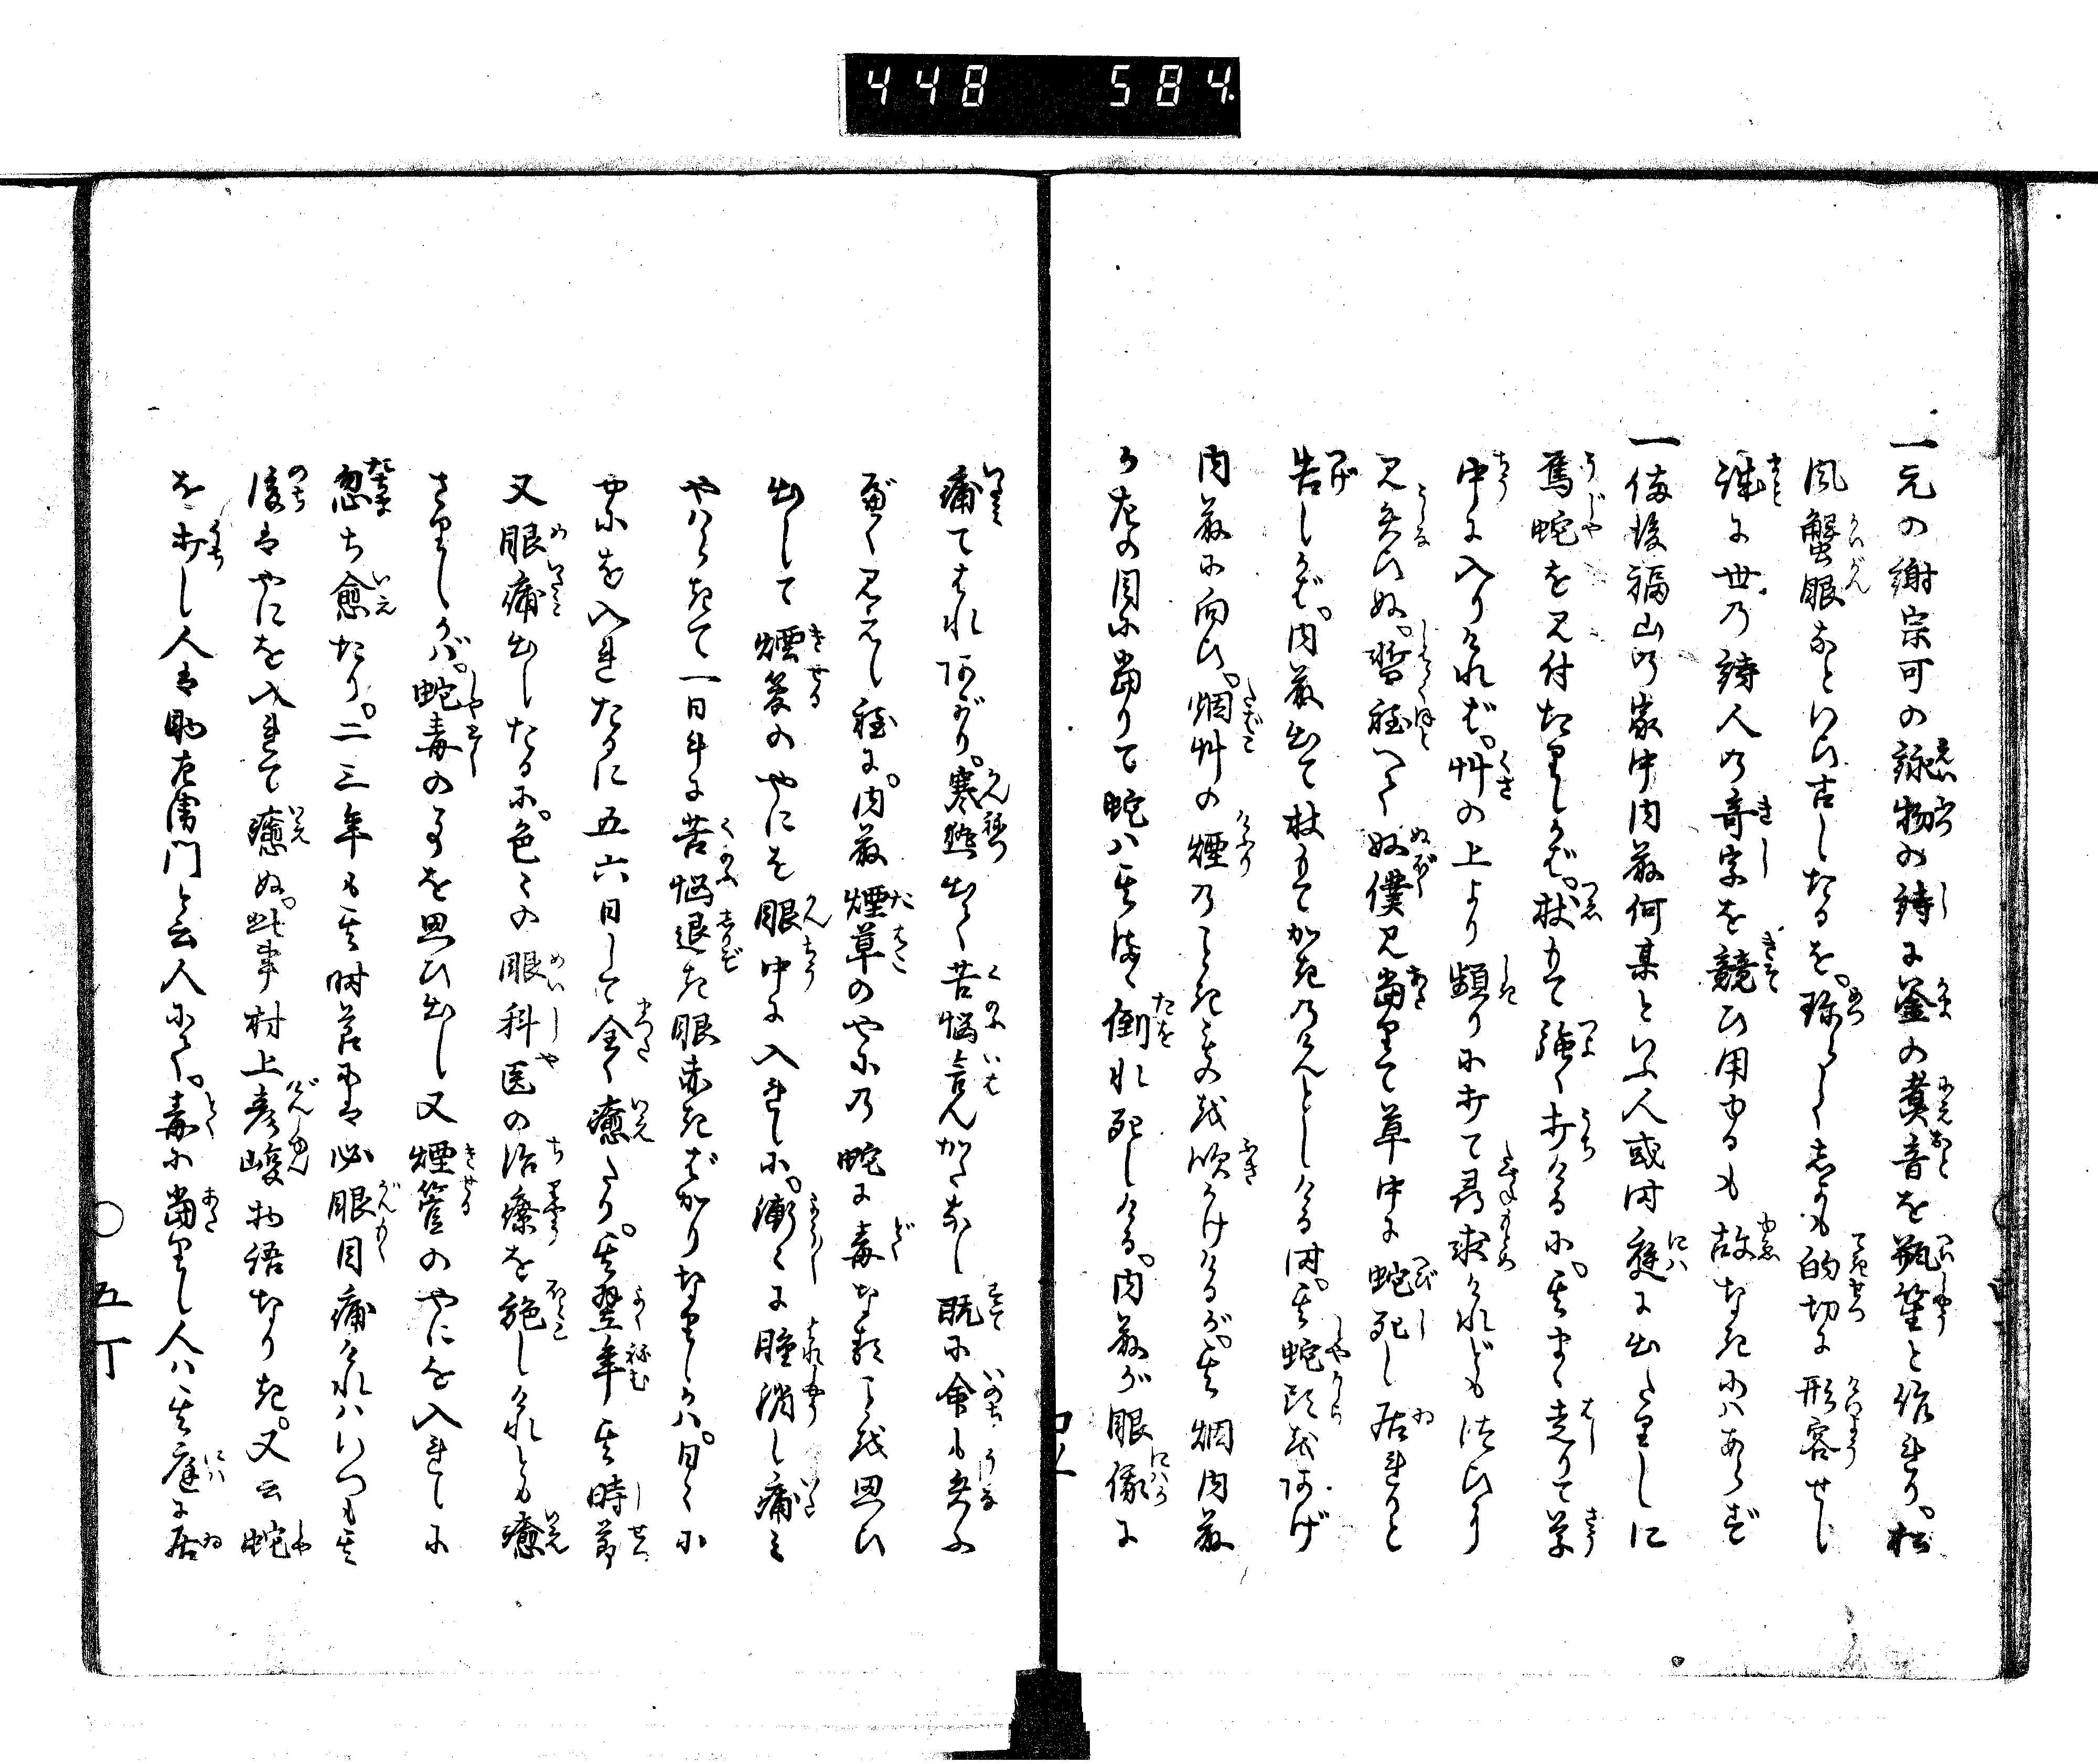 448 584
一元の謝宗可の詠物の詩に釜の煮音を瓶笙と作れり。松
風蟹眼なといひ古したるを。珍らしく志かも的切に形容せし
誠に世の詩人の奇字を競ひ用ゆるも故なきにハあらず
一備後福山の家中内藤何某といふ人或時庭に出たりしに
烏蛇を見付たりしかば。杖もて強く打ける に。其まゝ走りて草
中に入りけれど。草の上より頻りに打て尋求けれども終ひに
見失ひぬ。暫程へて奴僕見当りて草中に蛇死し居れりと
告しかば。内藤出て杖もてかきのけんとしける時。其蛇頭をあげ
内藤に向ひ。烟草の煙のごときものを吹かけけるが。其烟内藤
が左の目に当りて蛇ハ其儘倒れ死しける。内藤が眼俄に
痛てはれあがり。寒熱出て苦悩言んかたなし既に命も失ふ
べく見えし程に。内藤煙草のやにの蛇に毒なる事を思ひ
出して煙管のやにを眼中に入れしに。漸々に腫消し痛ミ
やハらぎて一日斗に苦悩退き眼赤きばかりなりしかハ。日々に
やにを入れたるに五六日して全く癒たり。其翌年其時節
又眼痛出したるに。色々の眼科医の治療を施しけれとも癒
ざりしかば。蛇毒の事を思ひ出し又煙管のやにを入れしに
忽ち愈たり。二三年も其時节にハ必眼目痛けれハいつも其
後ハやにを入れて癒ぬ。此事村上彦峻物語なりき。又云蛇
を打し人ハ助左衛門と云人にて。毒に当りし人ハ其庭に居
五丁